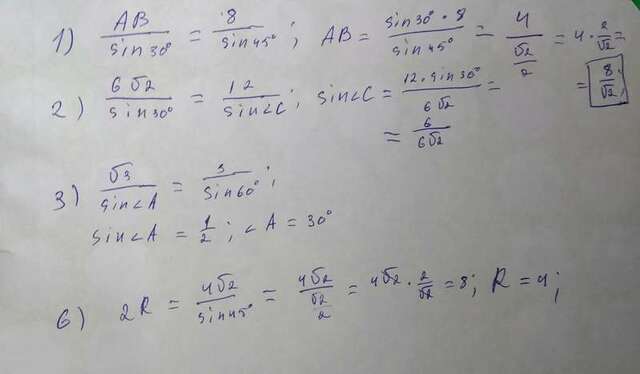 1) AB/sin30° = 8/sin45° ; AB = sin30°·8/sin45° = 4/(√2/2) = 4·2/√2 =
= 8/√2
2) 6√2/sin30° = 12/sin∠C ; sin∠C = 12·sin30°/6√2 =
= 6/6√2
3) √3/sin∠A = 3/sin60° ;
sin∠A = 1/2 ; ∠A = 30°
6) 2R = 4√2/sin45° = 4√2/(√2/2) = 4√2·2/√2 = 8; R = 4;